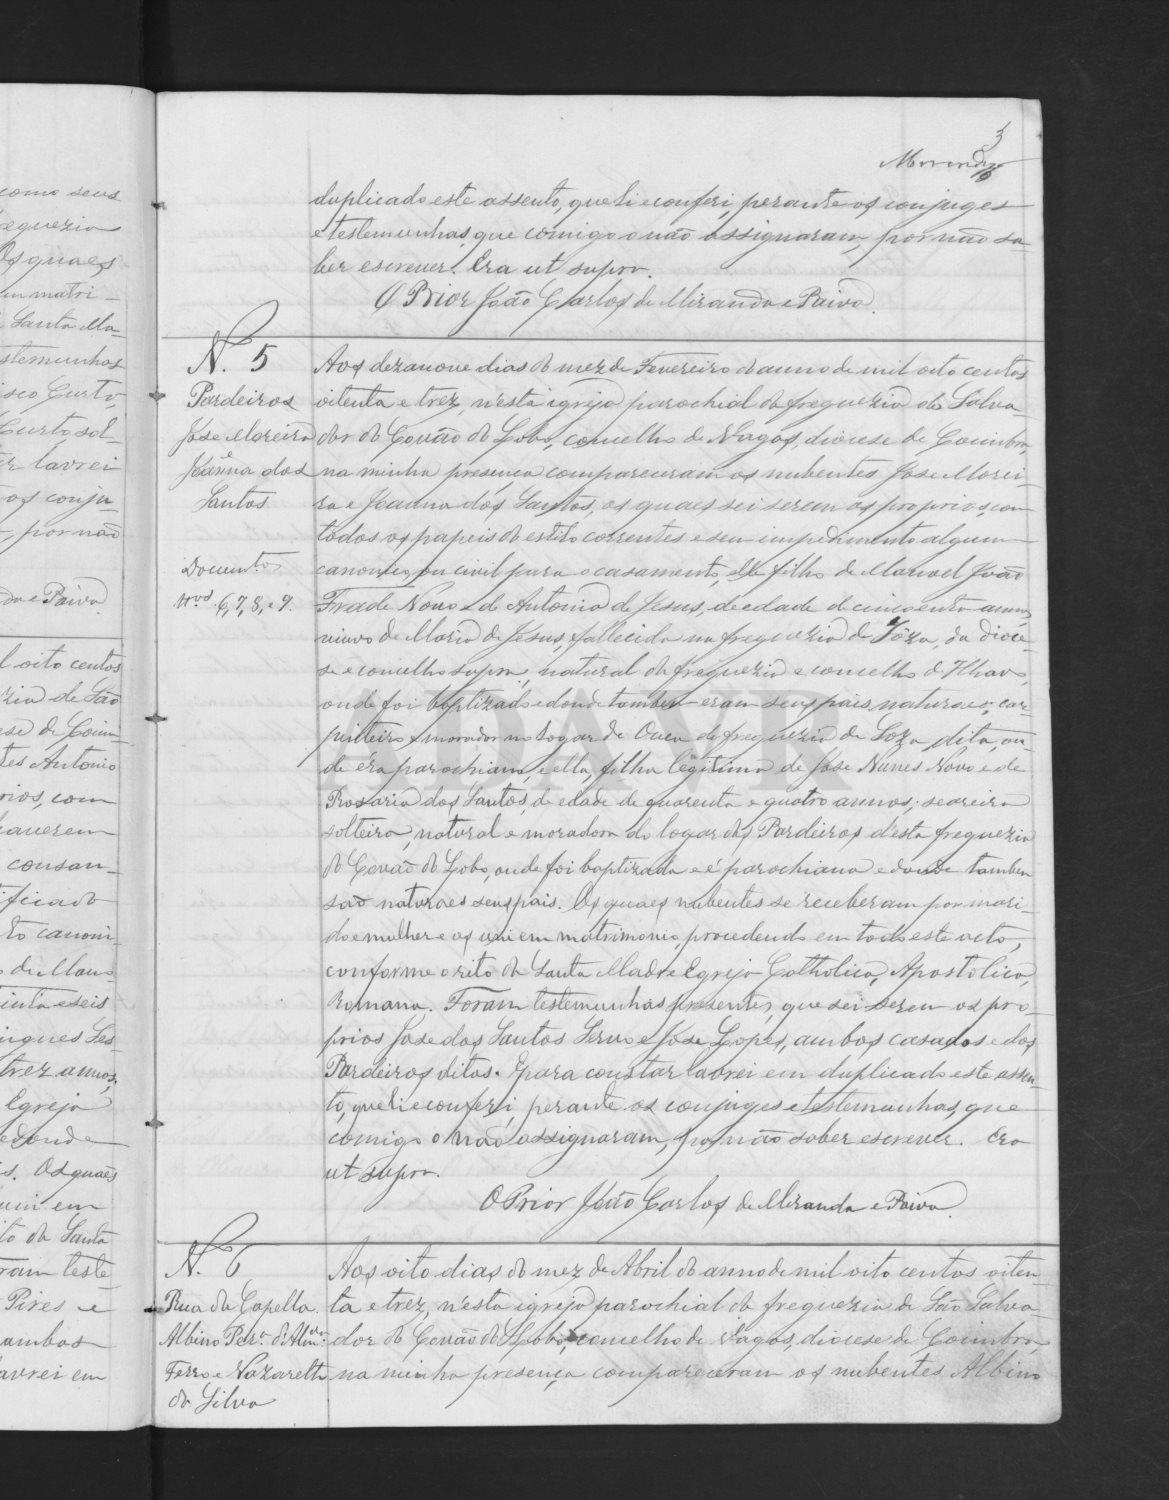 3
duplicado este assento, que li e conferi, perante os conjuges
e testemunhas, que comigo o não assignaram, por não sa-
ber escrever. Era ut supra.
O Prior João Carlos de Miranda e Paiva.
N. 5
Pardeiros
Jose Moreira
e
Joanna dos
Santos
Documentos
Nos 6, 7, 8, e 9.
Aos dezanove dias do mez de Fevereiro do anno de mil oito centos
oitenta e trez, n'esta igreja parochial da freguezia do Salva-
dor do Covão do Lobo, concelho de Vagos, diocese de Coimbra,
na minha presença compareceram os nubentes Jose Morei-
ra e Joanna dos Santos, os quaes sei serem os proprios, com
todos os papeis do estilo correntes e sem impedimento algum
canonico, ou civil para o casamento, elle filho de Manoel João
Frade Novo e de Antonia de Jesus, de edade de cincoenta annos,
viuvo de Maria de Jesus, fallecida na freguezia de Sôza, da dioce-
se e concelho supra, natural da freguezia e concelho d'Ilhavo,
onde foi baptizado e donde tambem eram seus pais naturaes; car-
pinteiro e morador no logar de Ouca da freguezia de Soza, dita, on-
de era parochiano, e ella, filha legitima de Jose Nunes Novo e de
Rosaria dos Santos, de edade de quarenta e quatro annos, seareira
solteira, natural e moradora do logar dos Pardeiros d'esta freguezia
do Covão do Lobo, onde foi baptizada e é parochiana e donde tambem
são naturaes seus pais. Os quaes nubentes se receberam por mari-
do e mulher e os uni em matrimonio, procedendo em todo este acto,
conforme o rito da Santa Madre Egreja Catholica, Apostolica,
Romana. Foram testemunhas presentes, que sei serem os pro-
prios Jose dos Santos Servo e Jose Lopes, ambos casados e dos
Pardeiros ditos. E para constar lavrei em duplicado este assen-
to, que li e conferi, perante os conjuges e testemunhas, que
comigo o não assignaram, por não saber escrever. Era
ut supra.
O Prior João Carlos de Miranda e Paiva.
N. 6
Rua da Capella.
Albino Perª d'Almdª
Ferro e Nazareth
da Silva
Aos oito dias do mez de Abril do anno de mil oito centos oiten-
ta e trez, n'esta igreja parochial da freguezia de São Salva-
dor do Covão do Lobo, concelho de Vagos, diocese de Coimbra,
na minha presença compareceram os nubentes Albino